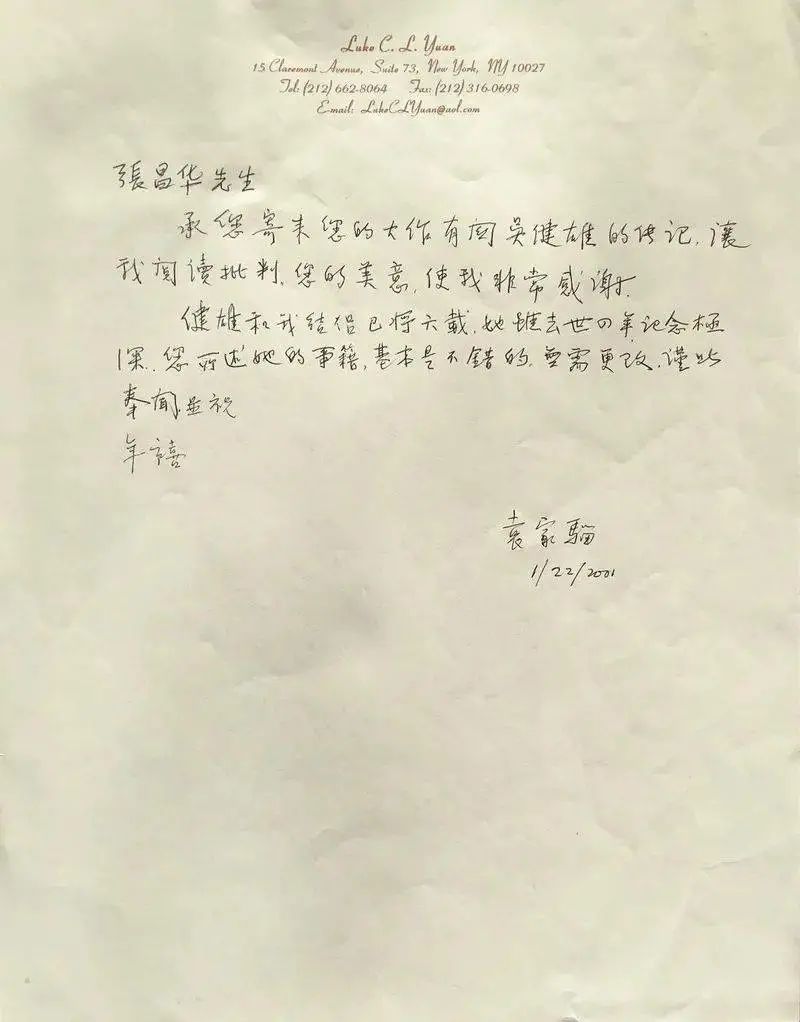 Luke C. L. Yuan
15 Claremont Avenue, Suite 73, New York, NY 10027
Tel: (212) 662-8064 Fax: (212) 316-0698
E-mail: LukeCLYuan@aol.com
張昌华先生
承您寄来您的大作有関吳健雄的传记,讓
我阅读批判,您的美意,使我非常感谢.
健雄和我结侣已将六載,她離去世四年记念極
深.您所述她的事籍,基本是不错的,無需更改,谨此
奉闻並祝
年禧
袁家騮
1/22/2001